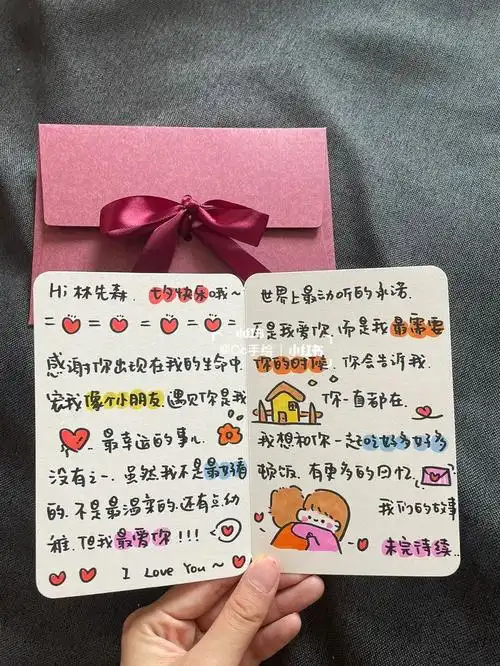 Hi 林先森. 七夕快乐哦~
= = = = =
感谢你出现在我的生命中
宠我像个小朋友. 遇见你是我
最幸运的事儿.
没有之一. 虽然我不是最好看
的. 不是最温柔的. 还有点幼
稚. 但我最爱你!!!
I Love You~
世界上最动听的承诺.
不是我爱你. 而是我最需要
你的时候. 你会告诉我.
你一直都在.
我想和你一起吃好多好多
顿饭. 有更多的回忆.
我们的故事
未完待续..
小红书
@Cc手绘 | 小红书